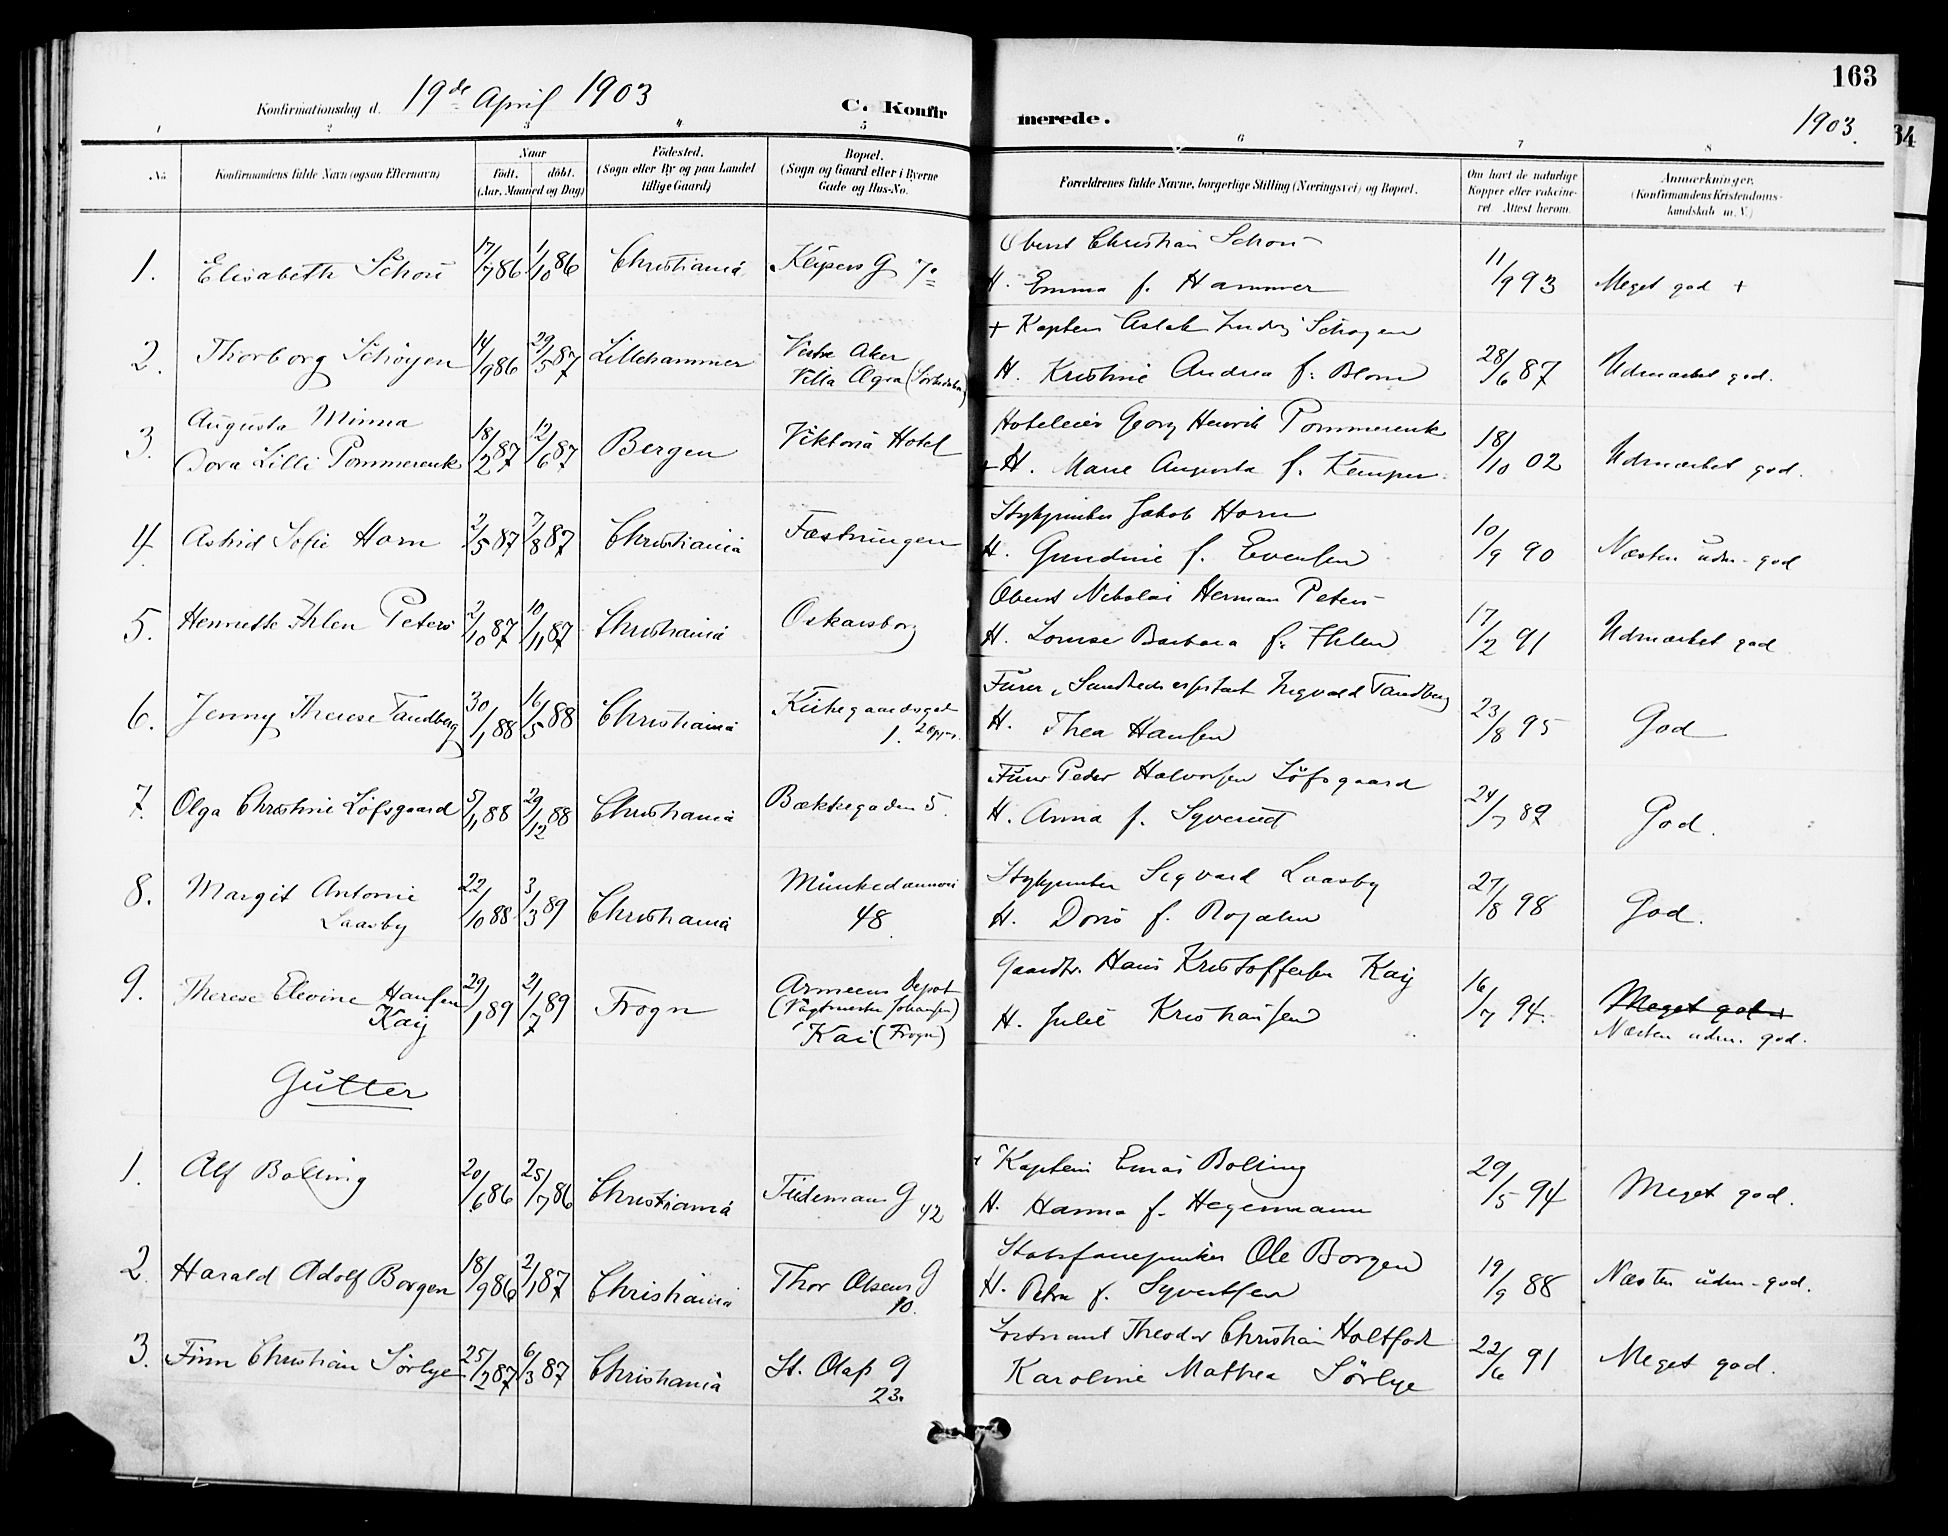 163
Konfirmationsdag d. 19de April 1903
C. Konfirmerede.
1903.
1 2 3 4 5 6 7 8
No.
Konfirmandens fulde Navn (ogsaa Efternavn)
Naar
født. døbt.
(Aar, Maaned og Dag)
Födested.
(Sogn eller By og paa Landet
tillige Gaard)
Bopæl.
(Sogn og Gaard eller i Byerne
Gade og Hus-No.
Forældrenes fulde Navne, borgerlige Stilling (Næringsvei) og Bopæl.
Om havt de naturlige
Kopper eller vakcine-
ret. Attest herom.
Anmærkninger.
(Konfirmandens Kristendoms-
kundskab m. V.)
1. Elisabeth Schou 17/7 86 1/10 86 Christiania Keysers G 7
Oberst Christian Schou
H. Emma f. Hammer 11/9 93 Meget god +
2. Thorborg Schøyen 14/9 86 29/5 87 Lillehammer Vestre Aker
Villa Ægra
+ Kaptein Aslak Ludv. Schøyen
H. Kristine Andrea f. Blom 28/6 87 Udmærket god.
3. Augusta Minna
Dora Lilli Pommerenk 18/2 87 12/6 87 Bergen Viktoria Hotel
Hoteleier Georg Henrik Pommerenk
+ H. Marie Augusta f. Kemper 18/10 02 Udmærket god.
4. Astrid Sofie Horn 2/5 87 7/8 87 Christiania Fæstningen
Stykjunker Jakob Horn
H. Gundine f. Evensen 10/9 90 Næsten udm. god
5. Henriette Ihlen Peters 2/10 87 10/11 87 Christiania Oskarsborg
Oberst Nikolai Herman Peters
H. Louise Barbara f. Ihlen 17/2 91 Udmærket god
6. Jenny Therese Tandberg 30/1 88 16/5 88 Christiania Kirkegaardsgt
1.
Furer, Sundhedsassistent Ingvald Tandberg
H. Thea Hansen 23/8 95 God
7. Olga Christine Løfsgaard 5/11 88 29/12 88 Christiania Bækkegaden 5.
Furer Peder Halvorsen Løfsgaard
H. Anna f. Syverud 24/7 89 God.
8. Margit Antonie
Laasby 22/10 88 3/3 89 Christiania Munkedamsvei
48.
Stykjunker Sigvard Laasby
H. Doris f. Rosahn 27/8 98 God.
9. Therese Elevine Hansen
Kaij 29/1 89 21/7 89 Frogn Armeens Depot
(Vagtmester Johansen)
Kai (Frogn)
Gaardbr. Hans Kristoffersen Kaij
H. Julie Kristiansen 16/7 94. Meget god +
Næsten udm. god.
Gutter
1. Alf Bolling 20/6 86 25/7 86 Christiania Tidemans G
42
+ Kaptein Enias Bolling
H. Hanna f. Hegermann 29/5 94 Meget god.
2. Harald Adolf Borgen 18/9 86 2/1 87 Christiania Thor Olsens G
10.
Stabsfanejunker Ole Borgen
H. Petra f. Syvertsen 19/9 88 Næsten udm. god.
3. Finn Christian Sørlye 25/2 87 6/3 87 Christiania St. Olafs G
23.
Løitnant Theodor Christian Holtfodt
Karoline Mathea Sørlye 22/6 91 Meget god.